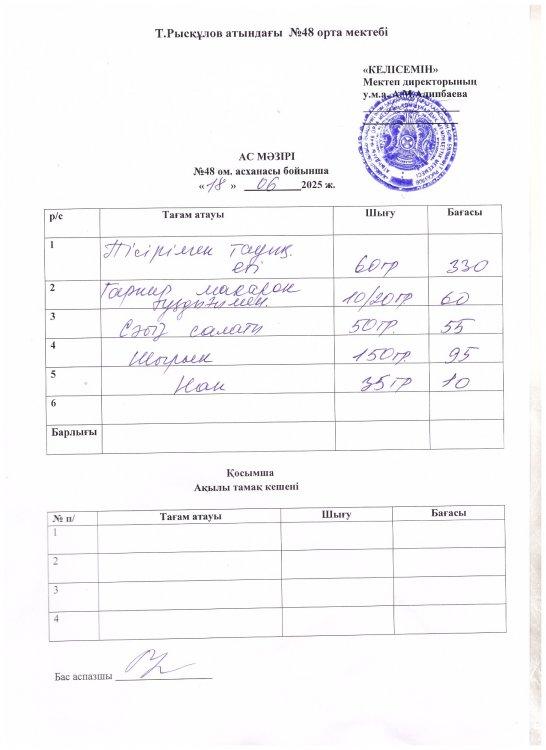 Т.Рысқұлов атындағы №48 орта мектебі
«КЕЛІСЕМІН»
Мектеп директорының
у.м.а. А.М.Адипбаева
АС МӘЗІРІ
№48 ом. асханасы бойынша
«18» 06 2025 ж.
р/с Тағам атауы Шығу Бағасы
1 Пісірілген тауық еті 60гр 330
2 Гарнир макарон тұздығымен. 10/20гр 60
3 Сәбіз салаты 50гр. 55
4 Шырын 150гр 95
5 Нан 35гр 10
6
Барлығы
Қосымша
Ақылы тамақ кешені
№ п/ Тағам атауы Шығу Бағасы
1
2
3
4
Бас аспазшы